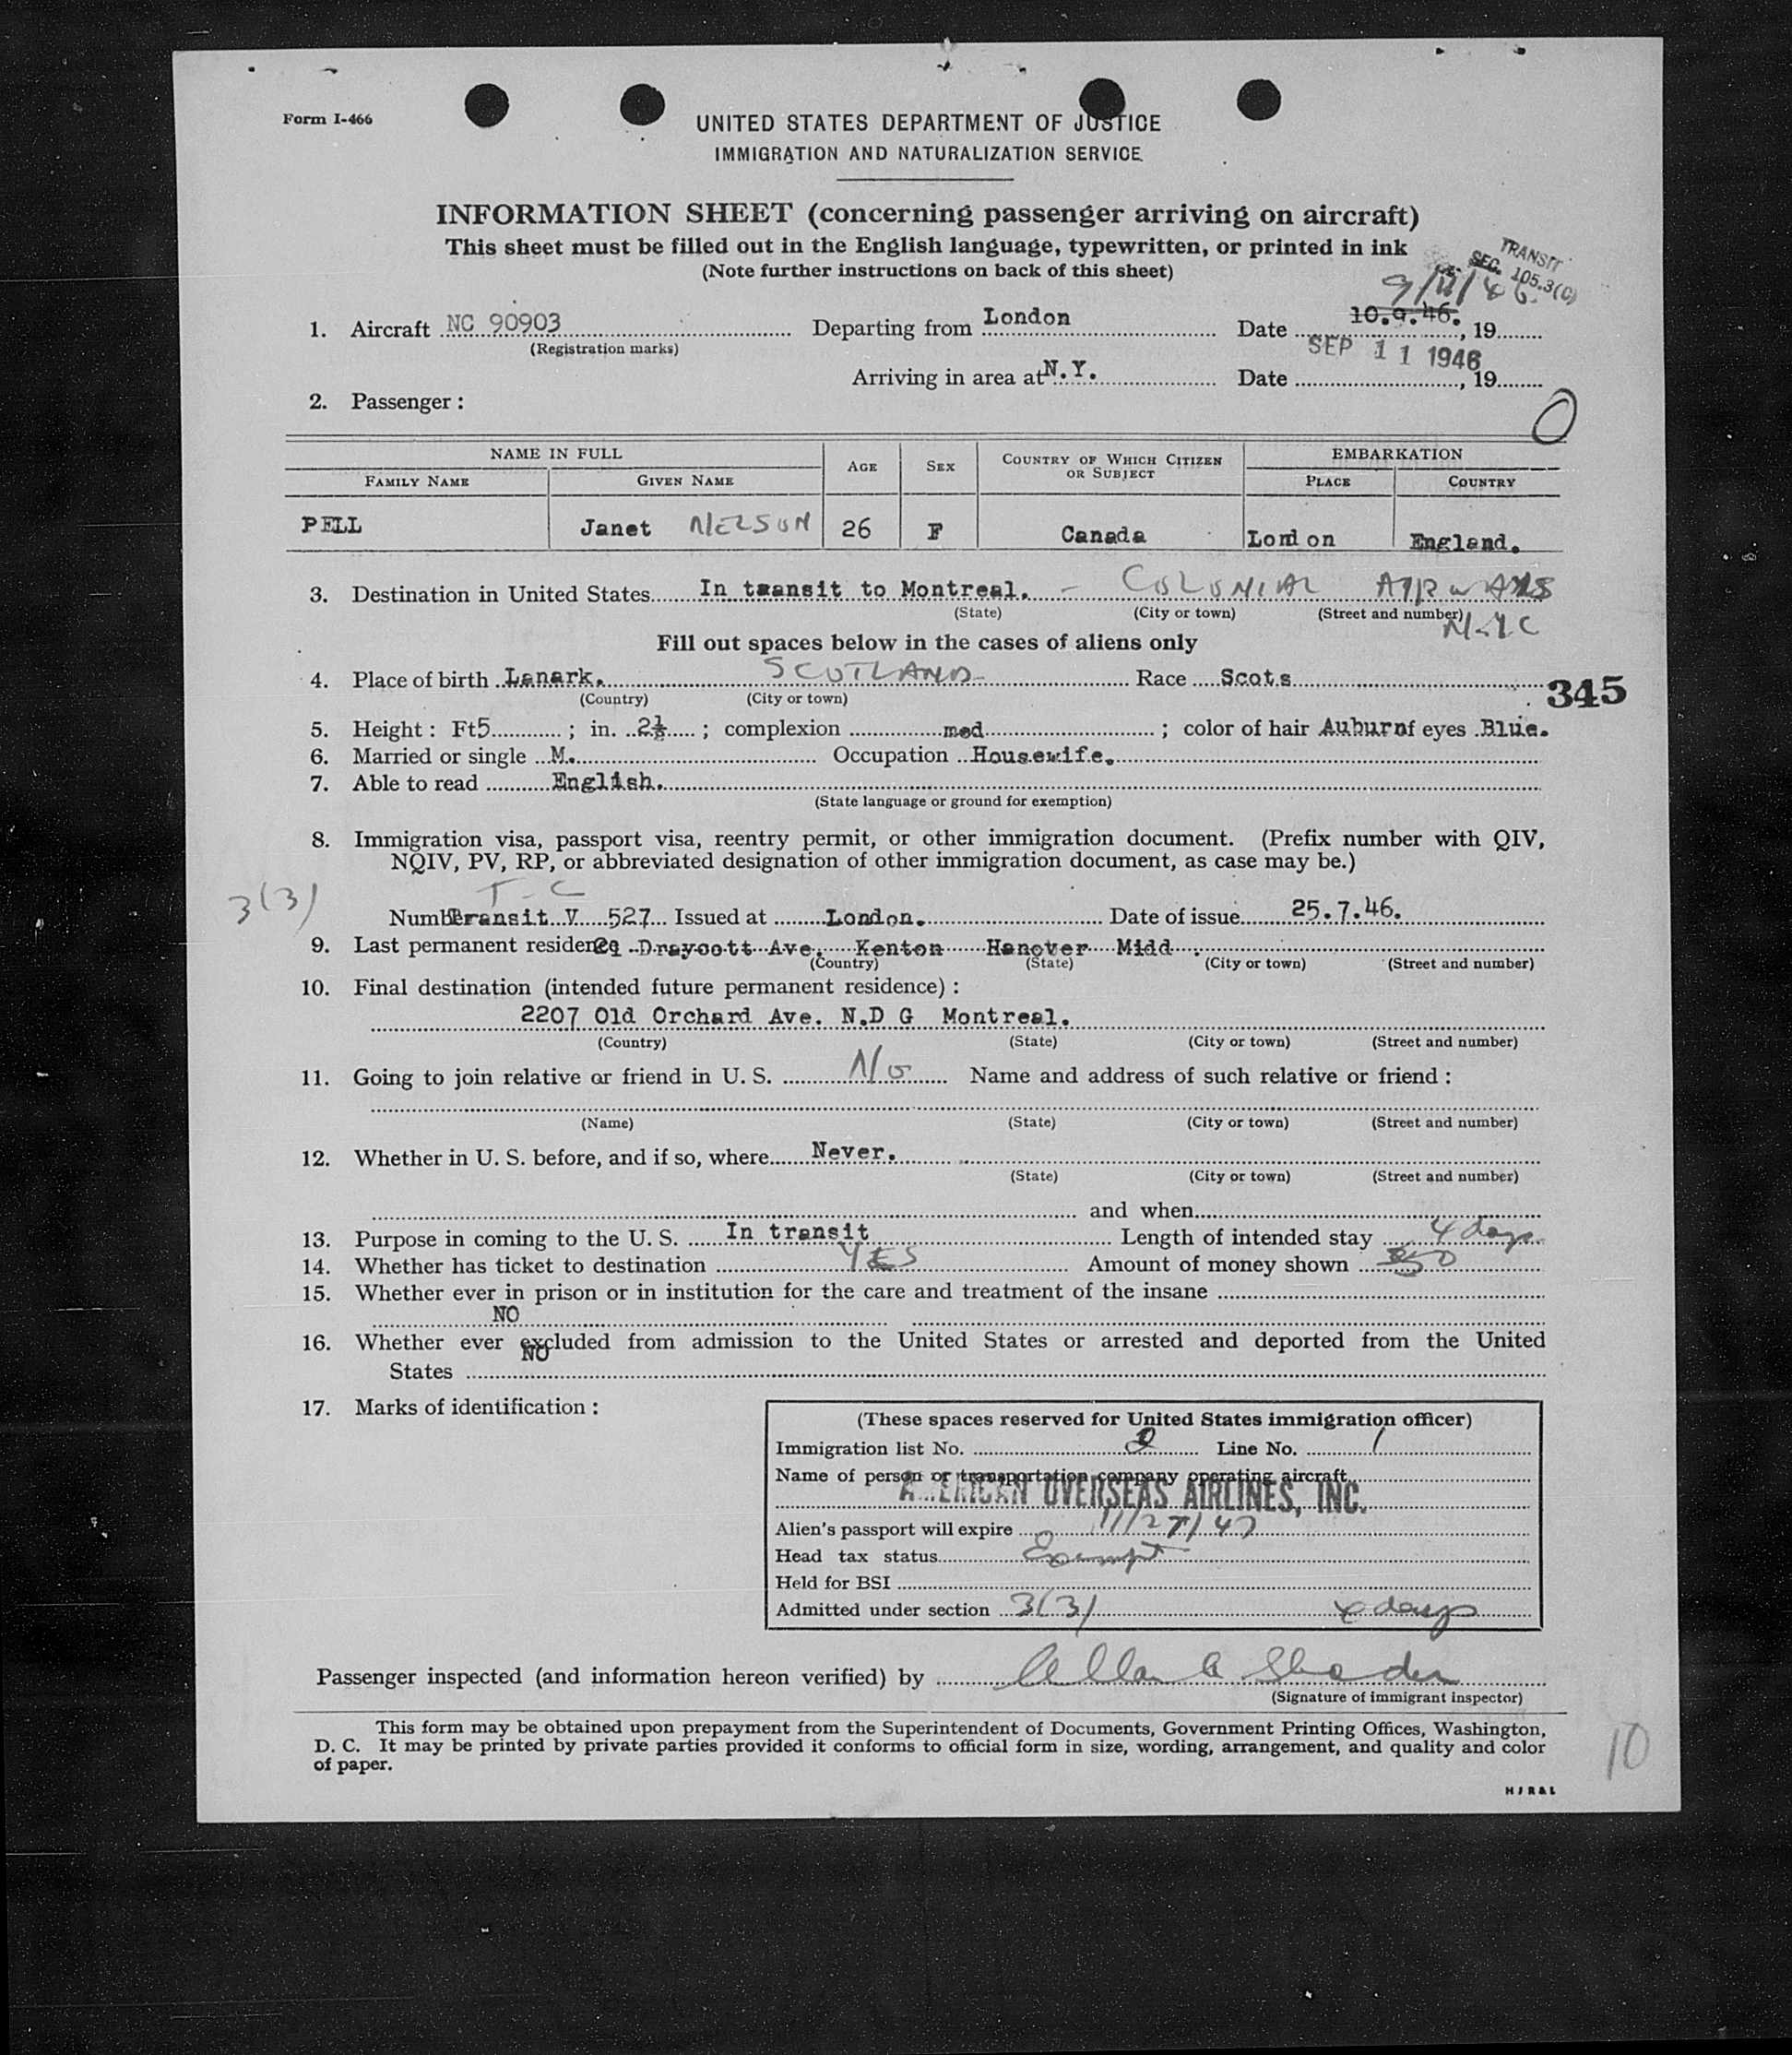 Form I-466
UNITED STATES DEPARTMENT OF JUSTICE
IMMIGRATION AND NATURALIZATION SERVICE
INFORMATION SHEET (concerning passenger arriving on aircraft)
This sheet must be filled out in the English language, typewritten, or printed in ink
(Note further instructions on back of this sheet)
TRANSIT
SEC. 105.3(C)
9/11/46
1. Aircraft NC 90903 Departing from London Date 10.9.46., 19
(Registration marks)
SEP 11 1946
Arriving in area at N.Y. Date , 19
2. Passenger :
0
NAME IN FULL AGE SEX COUNTRY OF WHICH CITIZEN OR SUBJECT EMBARKATION
FAMILY NAME GIVEN NAME PLACE COUNTRY
PELL Janet NELSON 26 F Canada London England.
3. Destination in United States In transit to Montreal. - COLONIAL AIRWAYS
(State) (City or town) (Street and number)
N.Y.C
Fill out spaces below in the cases of aliens only
4. Place of birth Lanark. SCOTLAND Race Scots
(Country) (City or town)
345
5. Height : Ft5 ; in. 2½ ; complexion med ; color of hair Auburn of eyes Blue.
6. Married or single M. Occupation Housewife.
7. Able to read English.
(State language or ground for exemption)
8. Immigration visa, passport visa, reentry permit, or other immigration document. (Prefix number with QIV,
NQIV, PV, RP, or abbreviated designation of other immigration document, as case may be.)
3(3) T-C
Number Transit V 527 Issued at London. Date of issue 25.7.46.
9. Last permanent residence Draycott Ave, Kenton Hanover Midd .
(Country) (State) (City or town) (Street and number)
10. Final destination (intended future permanent residence) :
2207 Old Orchard Ave. N.D G Montreal.
(Country) (State) (City or town) (Street and number)
11. Going to join relative or friend in U. S. No Name and address of such relative or friend :
(Name) (State) (City or town) (Street and number)
12. Whether in U. S. before, and if so, where Never.
(State) (City or town) (Street and number)
and when
13. Purpose in coming to the U. S. In transit Length of intended stay 4 days
14. Whether has ticket to destination YES Amount of money shown
15. Whether ever in prison or in institution for the care and treatment of the insane
NO
16. Whether ever excluded from admission to the United States or arrested and deported from the United
NO
States
17. Marks of identification :
(These spaces reserved for United States immigration officer)
Immigration list No. Line No. 1
Name of person or transportation company operating aircraft
AMERICAN OVERSEAS AIRLINES, INC.
Alien's passport will expire 11/27/47
Head tax status Exempt
Held for BSI
Admitted under section 3(3) 4 days
Passenger inspected (and information hereon verified) by
(Signature of immigrant inspector)
This form may be obtained upon prepayment from the Superintendent of Documents, Government Printing Offices, Washington,
D. C. It may be printed by private parties provided it conforms to official form in size, wording, arrangement, and quality and color
of paper.
10
HJR&L